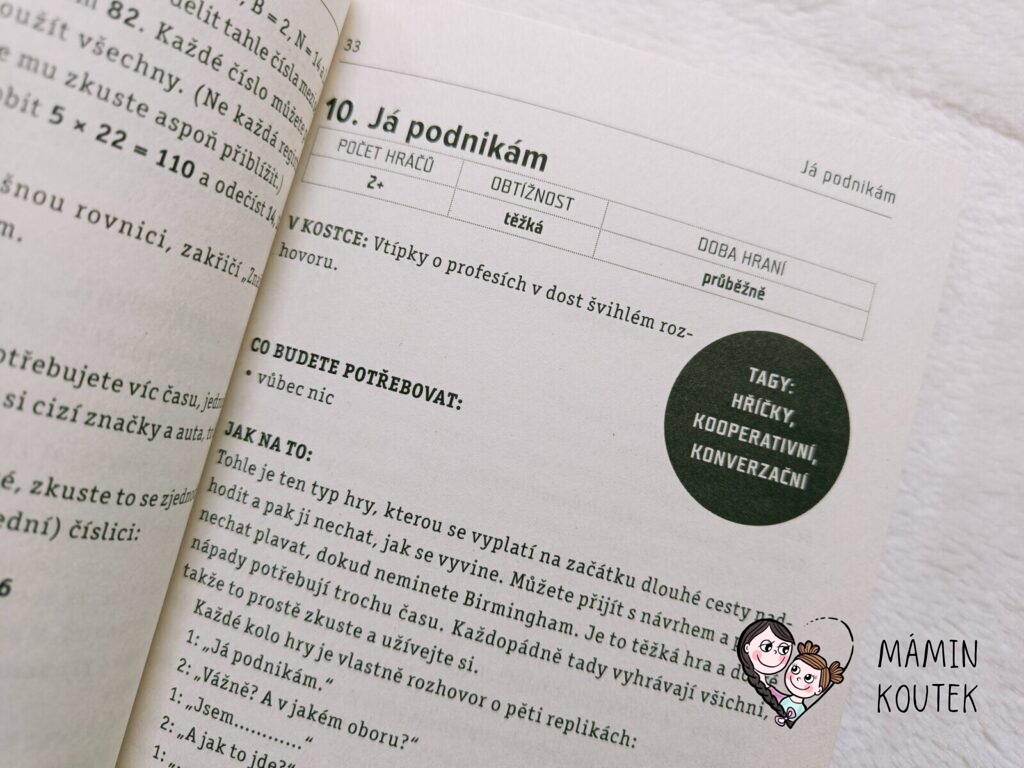 B = 2, N = 14
82. Každé číslo
oužít všechny. (Ne každá
mu zkuste aspoň přiblížit.)
5 × 22 = 110 a odečíst 14
šnou rovnici, zakřičí
m.
otřebujete víc času,
si cizí značky a auta,
é, zkuste to se
ední) číslici:
6
33
Já podnikám
10. Já podnikám
POČET HRÁČŮ
OBTÍŽNOST
DOBA HRANÍ
2+
těžká
průběžně
V KOSTCE: Vtípky o profesích v dost švihlém roz-
hovoru.
TAGY:
HŘÍČKY,
KOOPERATIVNÍ,
KONVERZAČNÍ
CO BUDETE POTŘEBOVAT:
• vůbec nic
JAK NA TO:
Tohle je ten typ hry, kterou se vyplatí na začátku dlouhé cesty nad-
hodit a pak ji nechat, jak se vyvine. Můžete přijít s návrhem a
nechat plavat, dokud neminete Birmingham. Je to těžká hra a
nápady potřebují trochu času. Každopádně tady vyhrávají všichni,
takže to prostě zkuste a užívejte si.
Každé kolo hry je vlastně rozhovor o pěti replikách:
1: „Já podnikám.“
2: „Vážně? A v jakém oboru?“
1: „Jsem............“
2: „A jak to jde?“
1:
MÁMIN
KOUTEK